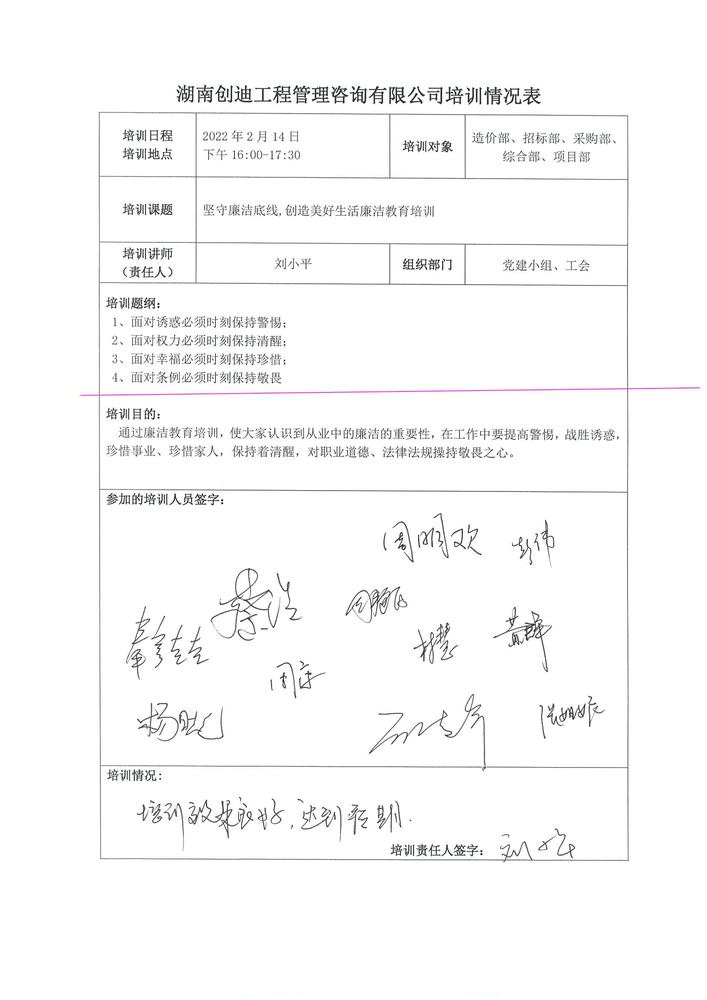 湖南创迪工程管理咨询有限公司培训情况表
培训日程
培训地点
2022 年 2 月 14 日
下午 16:00-17:30
培训对象
造价部、招标部、采购部、
综合部、项目部
培训课题
坚守廉洁底线,创造美好生活廉洁教育培训
培训讲师
（责任人）
刘小平
组织部门
党建小组、工会
培训题纲：
1、面对诱惑必须时刻保持警惕；
2、面对权力必须时刻保持清醒；
3、面对幸福必须时刻保持珍惜；
4、面对条例必须时刻保持敬畏
培训目的：
通过廉洁教育培训，使大家认识到从业中的廉洁的重要性，在工作中要提高警惕，战胜诱惑，
珍惜事业、珍惜家人，保持着清醒，对职业道德、法律法规操持敬畏之心。
参加的培训人员签字：
周明欢
彭伟
蔡浩
培训情况：
培训效果良好，达到预期.
培训责任人签字：